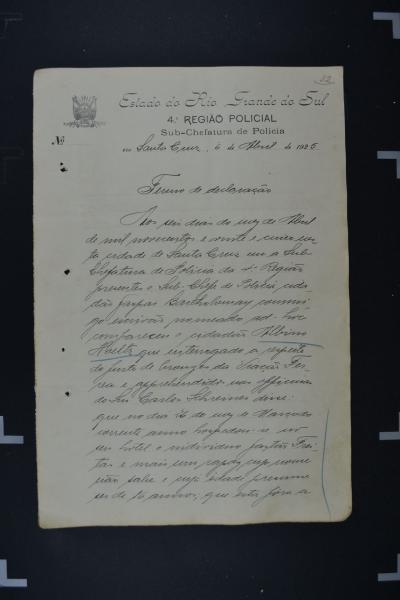 12
Estado do Rio Grande do Sul
4.ª REGIÃO POLICIAL
Sub-Chefatura de Policia
Nº
em Santa Cruz, 6 de Abril de 1925
Termo de declaração
Aos seis dias do mez de Abril
de mil novecentos e vinte e cinco nes
ta cidade de Santa Cruz em a Sub-
Chefatura de Policia da 4ª Região
presentes o Sub-Chefe de Policia, cida
dão Gaspar Bartholomay commi
go escrivão nomeado ad-hoc
compareceu o cidadão Albino
que interrogado a respeito
do furto de bronzes da Viação Fer
rea e apprehendidos nas officinas
do Snr Carlos Schreiner disse:
que no dia 16 do mez de Março do
corrente anno hospedou-se no
seu hotel o individuo Gastão Frei
tas e mais um rapaz cujo nome
não sabe e cuja idade presume
ser de 16 annos; que esta fôra a